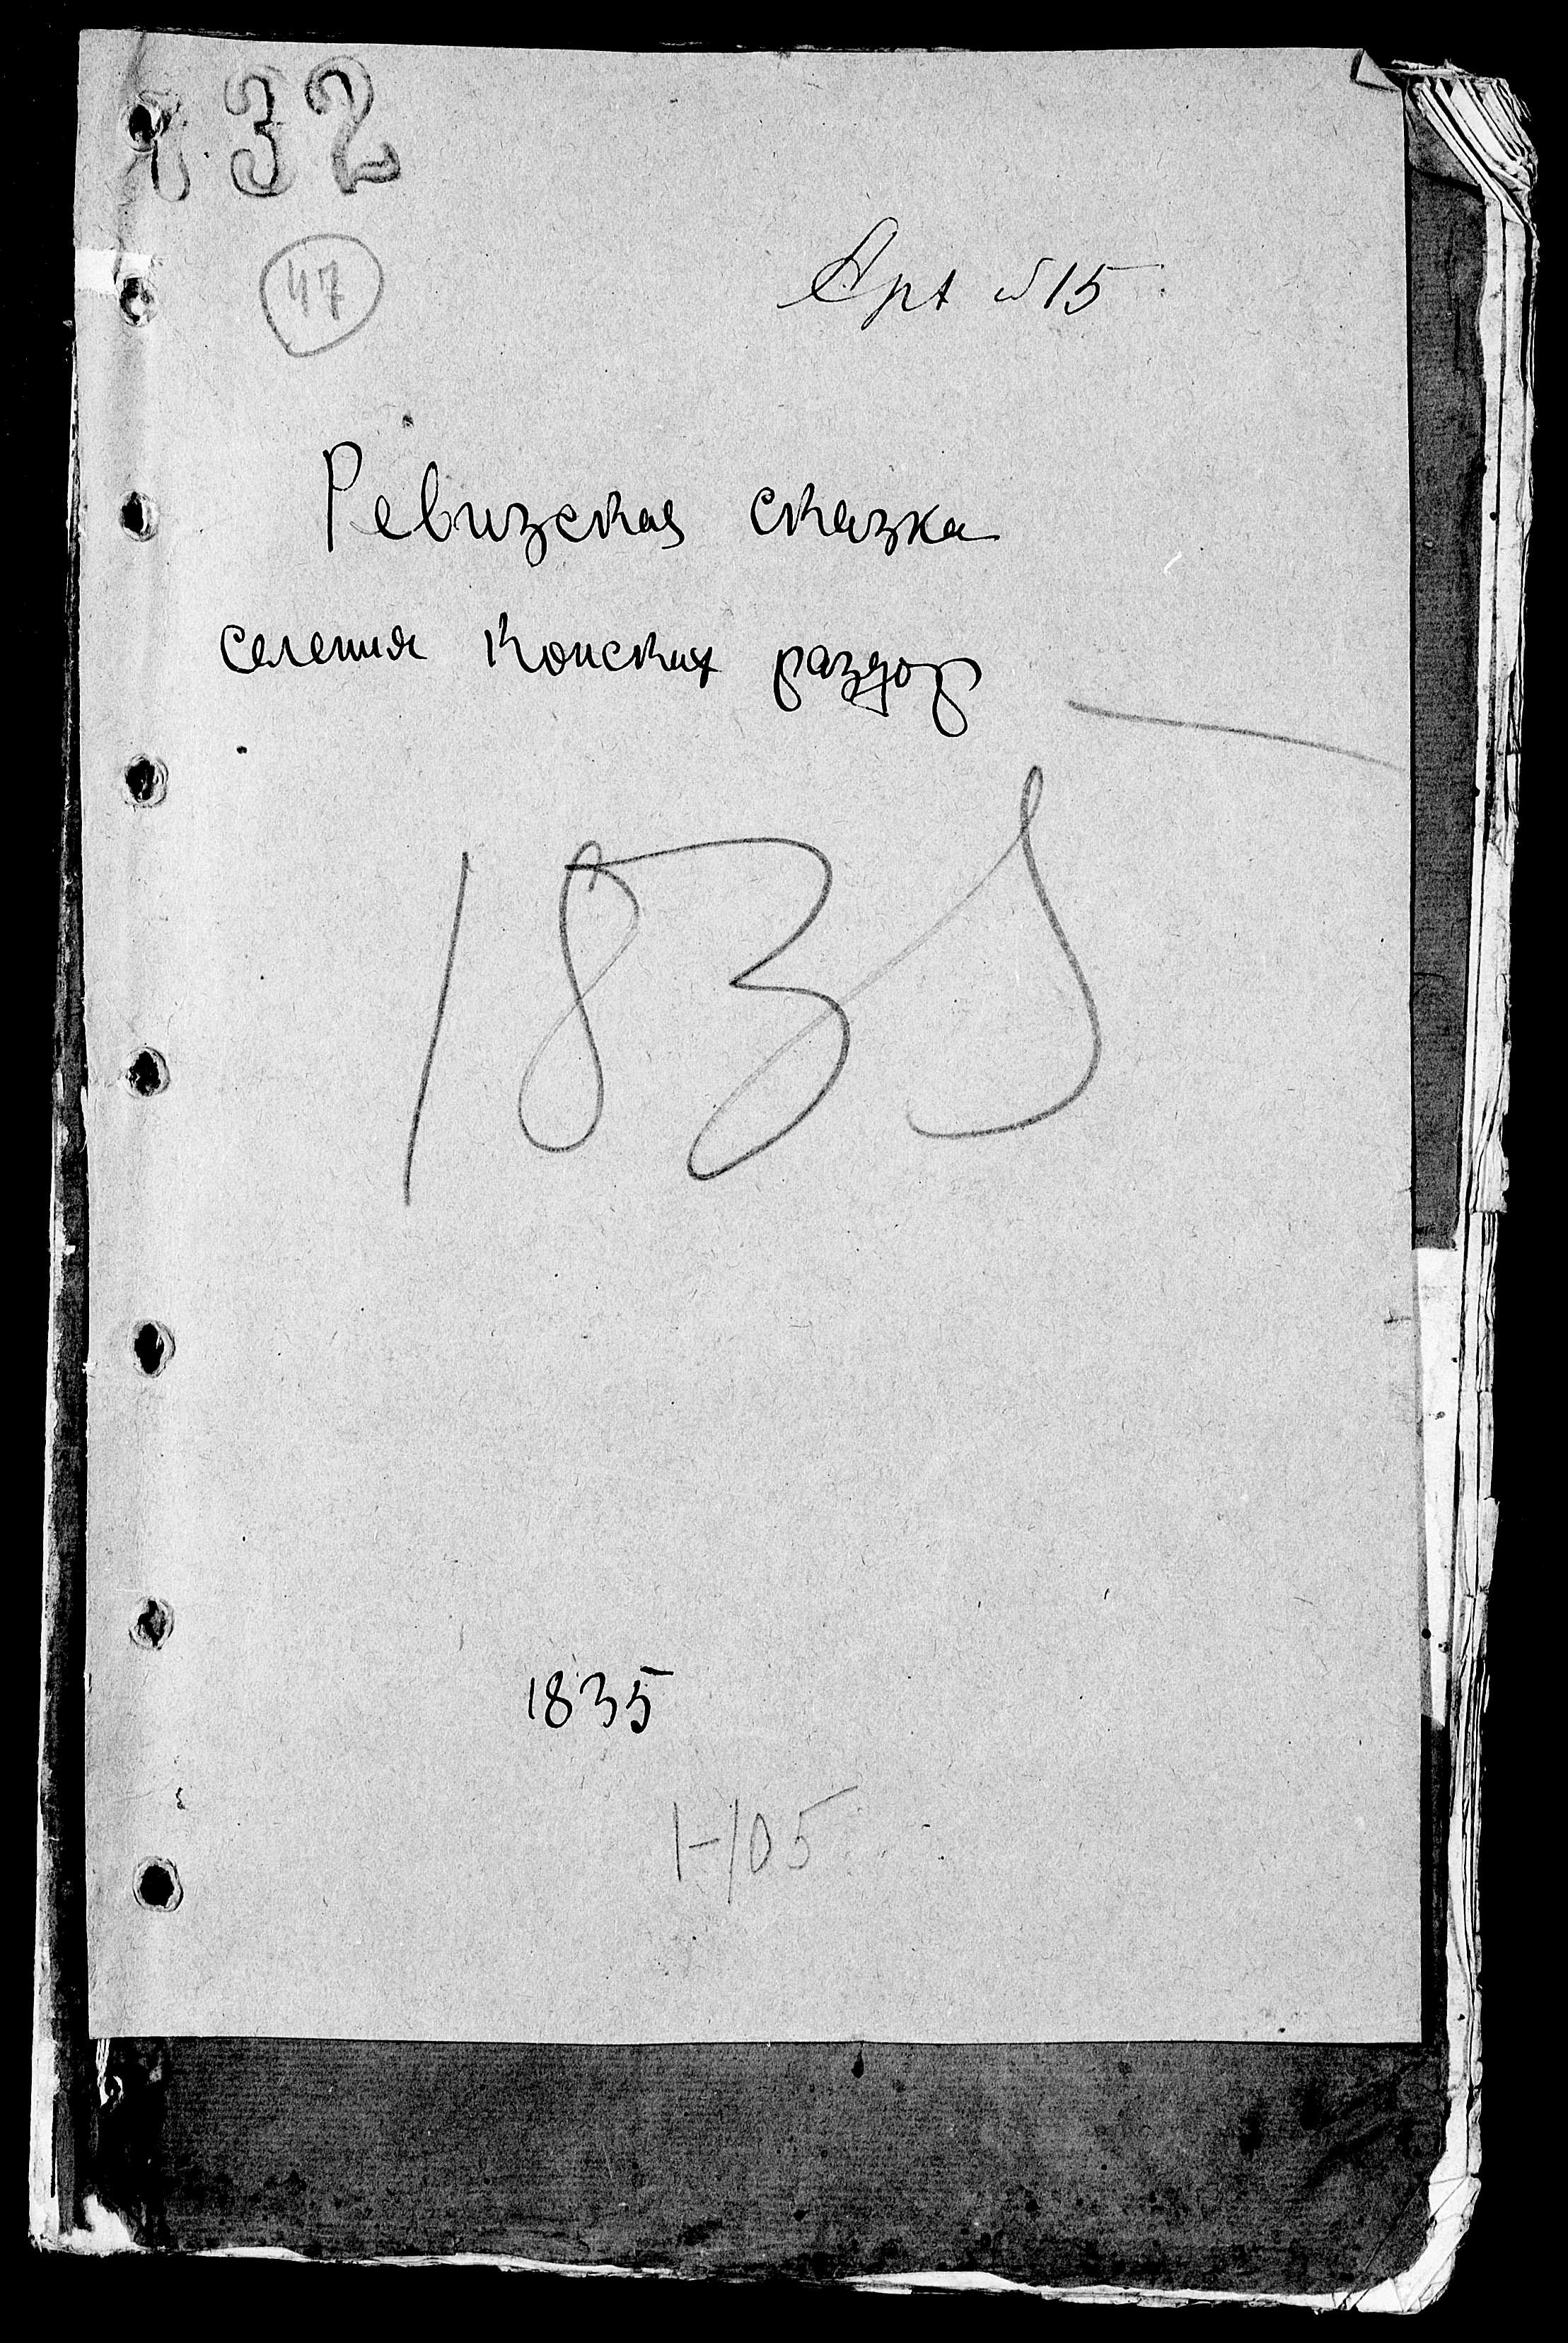 132
47
Арх №15
Ревизская сказка
селения Конских раздор
1835
1835
1-105